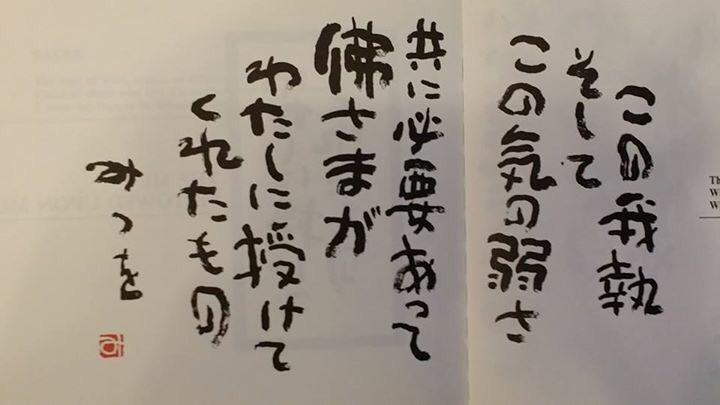 この我執
そして
この気の弱さ
共に必要あって
佛さまが
わたしに授けて
くれたもの
みつを
Th
W
W